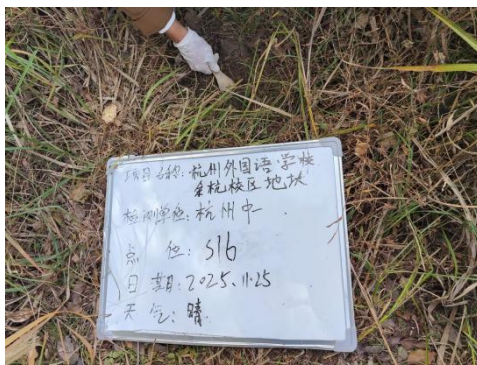 项目名称:杭州外国语学校
余杭校区地块
检测单位:杭州中一
点 位:S16
日 期:2025.11.25
天 气:晴